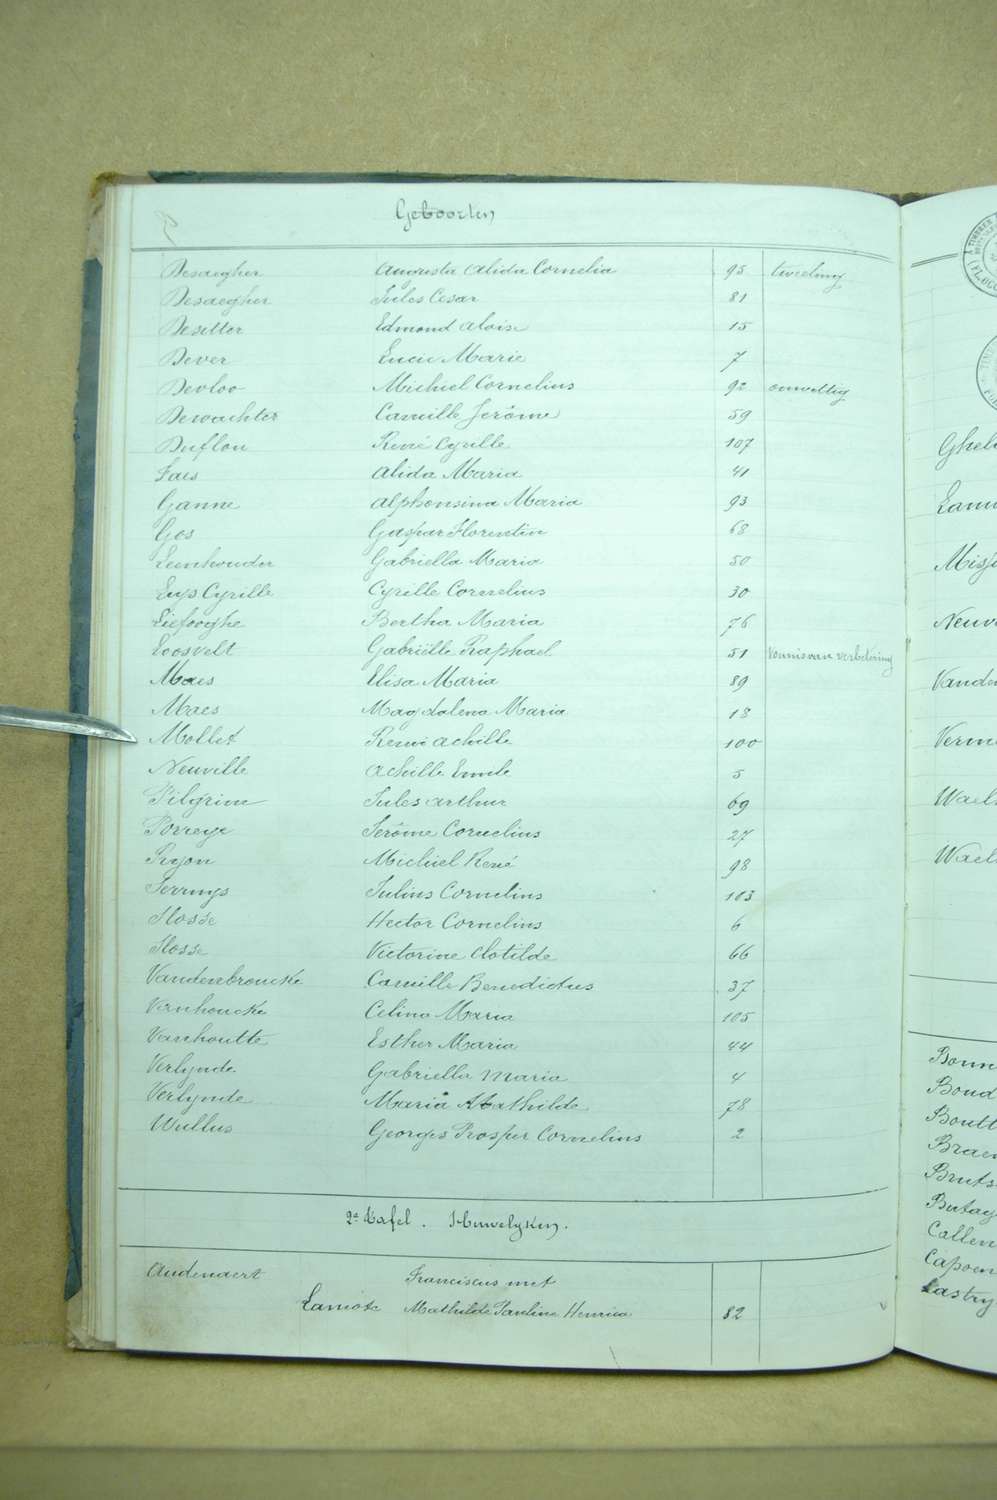 Geboorten
Desaegher Augusta Alida Cornelia 95 tweeling
Desaegher Jules Cesar 81
Desetter Edmond Aloise 15
Dever Lucie Marie 7
Devloo Michiel Cornelius 92 onwettig
Dewachter Camille Jerôme 59
Duflou René Cyrille 107
Faes Alida Maria 41
Ganne Alphonsina Maria 93
Gos Gaspar Florentin 68
Leenhouder Gabriella Maria 50
Leys Cyrille Cyrille Cornelius 30
Liefooghe Bertha Maria 76
Loosvelt Gabriëlle Raphael 51 Vonnis van verbetering
Maes Elisa Maria 89
Maes Magdalena Maria 18
Mollet Remi Achille 100
Neuville Achille Emile 5
Pilgrim Jules Arthur 69
Porreye Jerôme Cornelius 27
Ryon Michiel René 98
Serruys Julius Cornelius 103
Slosse Hector Cornelius 6
Slosse Victorine Clotilde 66
Vandenbroucke Camille Benedictus 37
Vanhoucke Celina Maria 105
Vanhoutte Esther Maria 44
Verlynde Gabriella Maria 4
Verlynde Maria Mathilde 78
Wullus Georges Prosper Cornelius 2
2e Tafel. Huwelyken.
Audenaert Franciscus met
Lamote Mathilde Pauline Henrica 82
Neuv
Vanden
Verm
Wael
Wael
Boud
Boutt
Brae
Bruts
Callen
Capoen